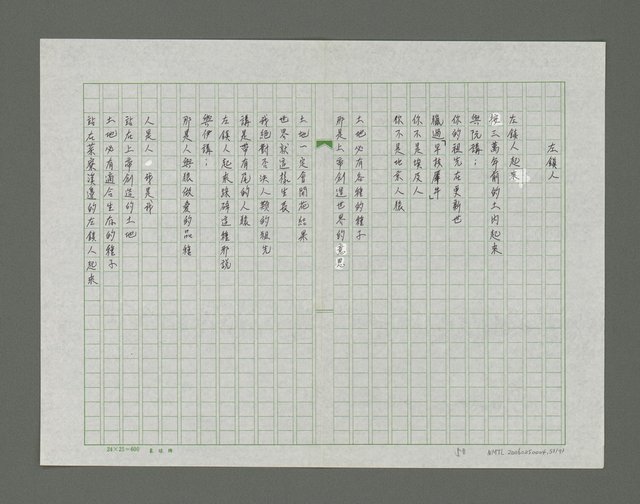 左鎮人
左鎮人起來
從三萬年前的土內起來
與阮講：
你的祖先在更新世
獵過「早坂犀牛」
你不是埃及人
你不是北京人猿
土地必有各種的種子
那是上帝創造世界的意思
土地一定會開花結果
世界就這樣生長
我絕對否決人類的祖先
講是帶有尾的人猿
左鎮人起來破碎這種邪說
與伊講：
那是人與猿做愛的品種
人是人 我是我
站在上帝創造的土地
土地必有適合生存的種子
站在菜寮溪邊的左鎮人起來
24×25=600
51
NMTL 20060250004,51/91